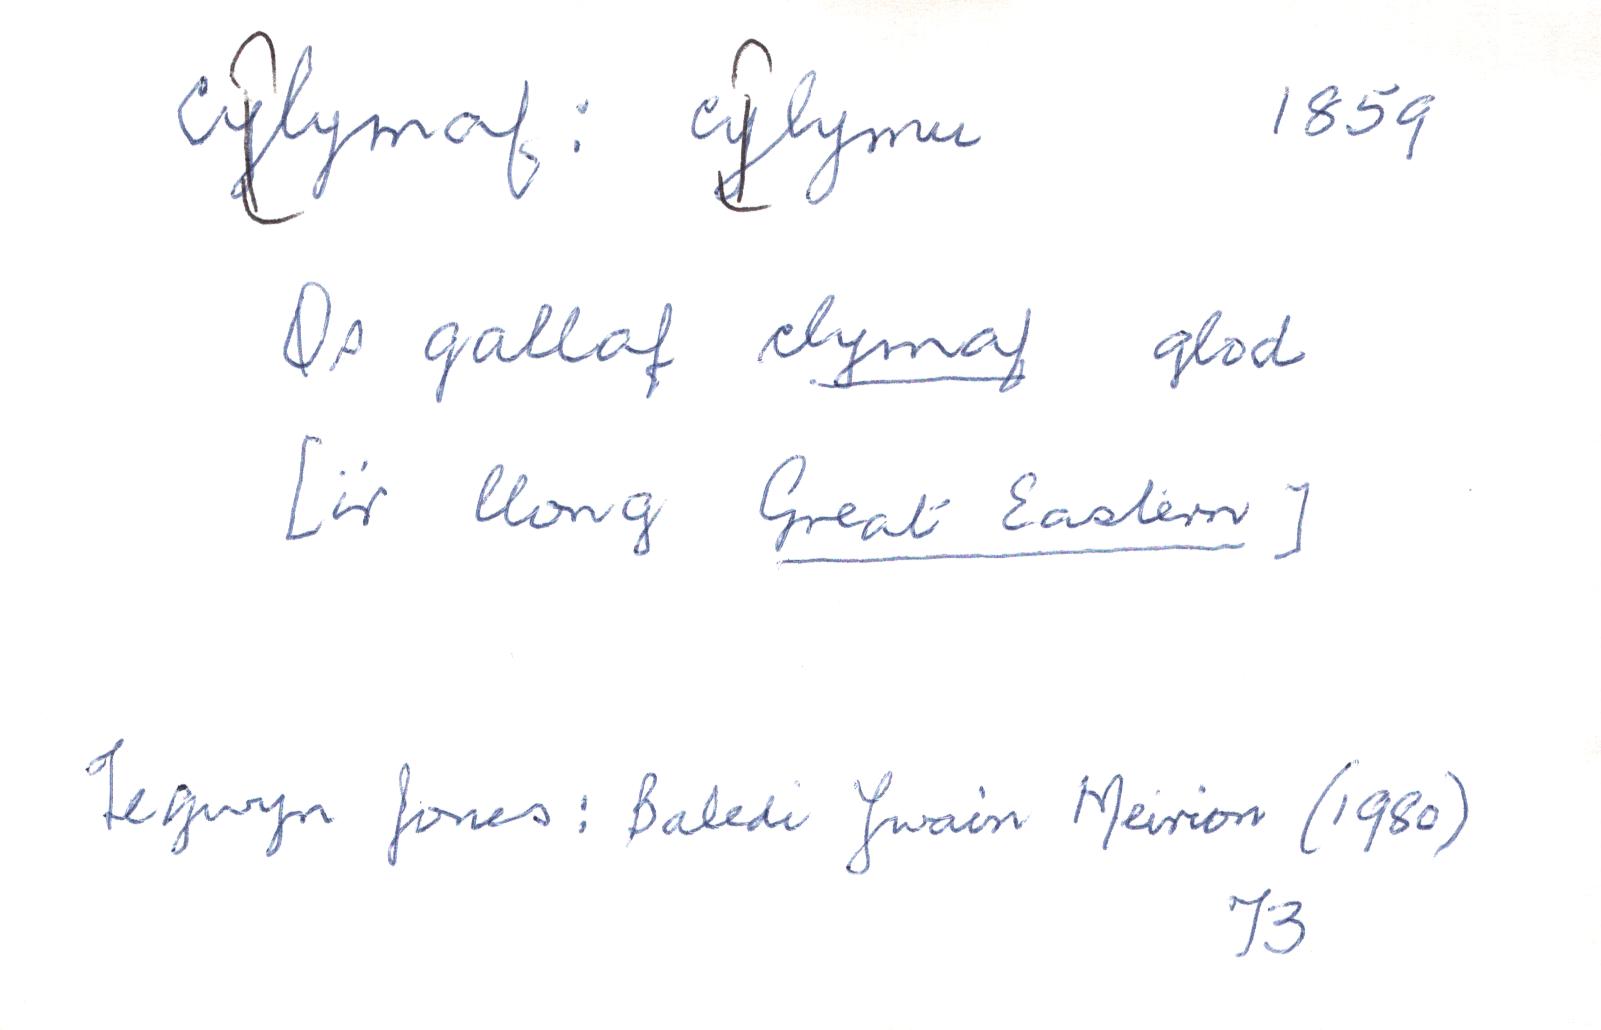 cylymaf: cylymu 1859
Os gallaf clymaf glod
[i'r llong Great Eastern]
Tegwyn Jones: Baledi Ywain Meirion (1980)
73